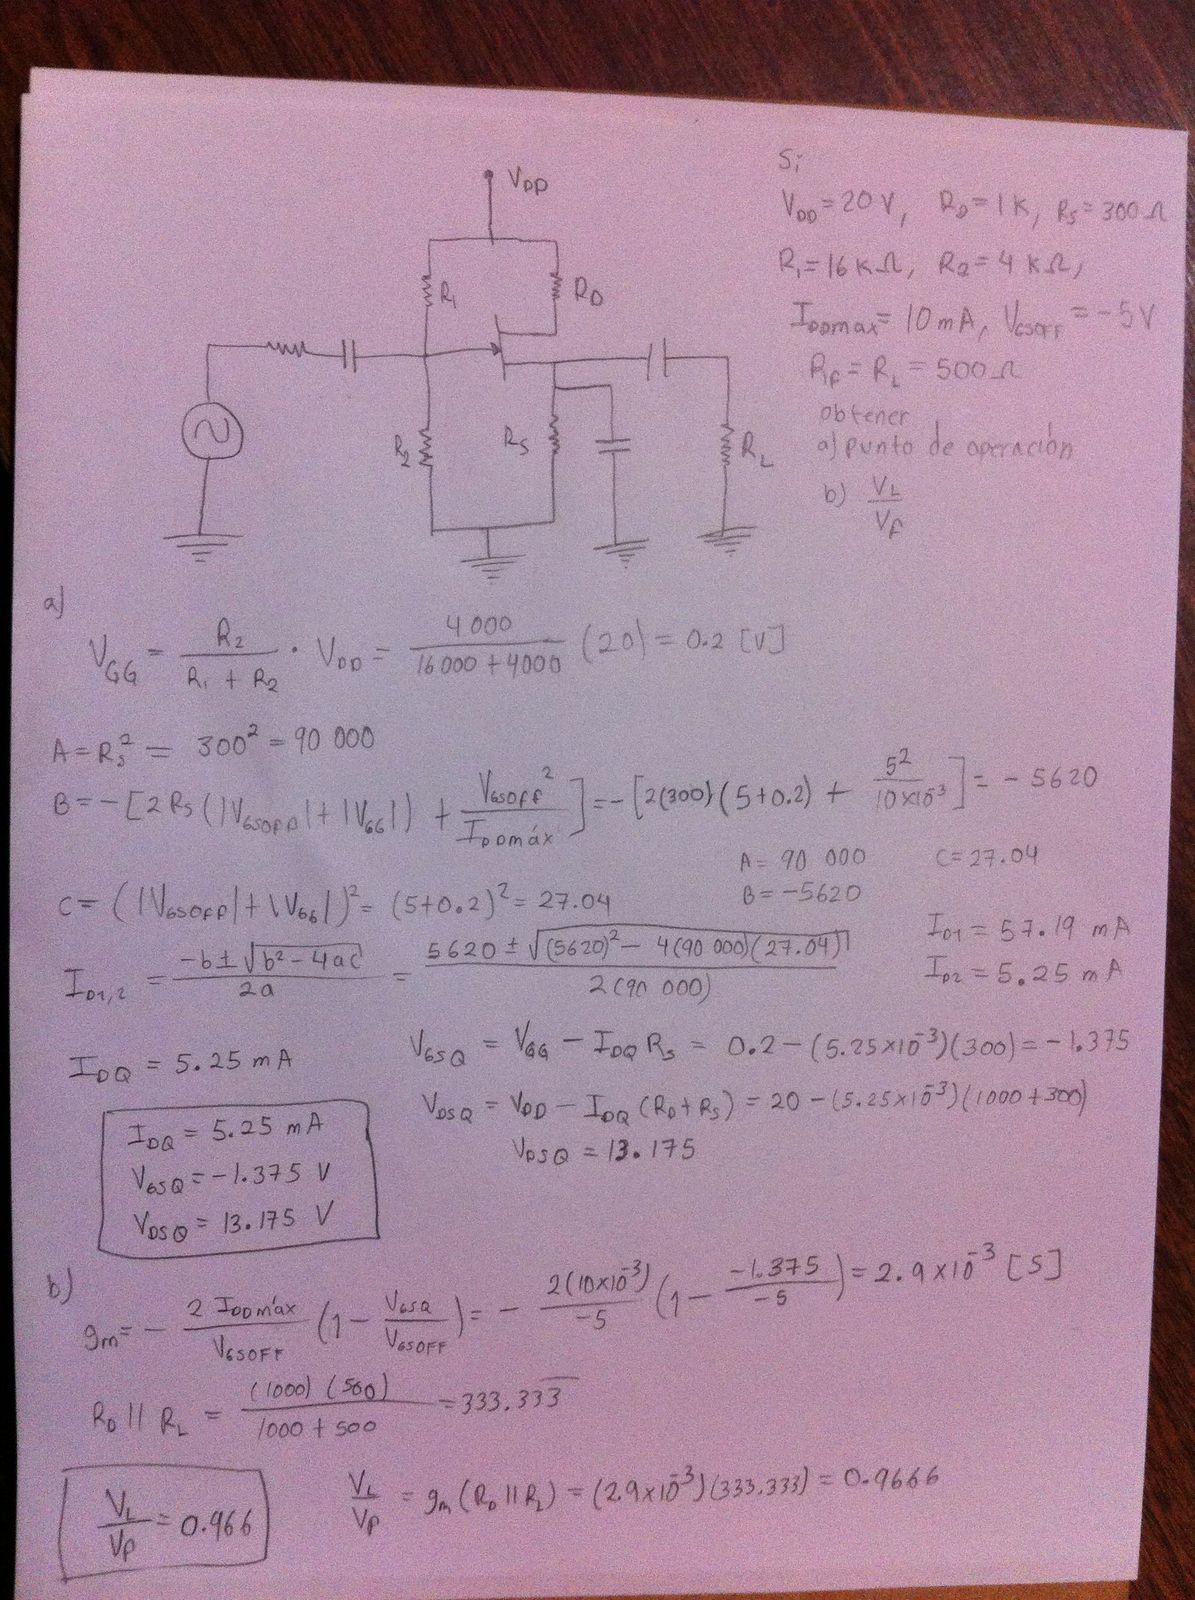 Si
V_DD = 20 V, R_D = 1 K, R_S = 300 Ω
R_1 = 16 K Ω, R_2 = 4 K Ω,
I_DDmax = 10 mA, V_GSOFF = -5 V
R_F = R_L = 500 Ω
obtener
a) punto de operación
b) V_L / V_F
V_DD
R_1
R_D
R_2
R_S
R_L
a)
V_GG = R_2 / (R_1 + R_2) · V_DD = 4 000 / (16 000 + 4000) (20) = 0.2 [V]
A = R_S^2 = 300^2 = 90 000
B = - [2 R_S (|V_GSOFF| + |V_GG|) + V_GSOFF^2 / I_DDmáx] = - [2(300)(5+0.2) + 5^2 / 10×10^-3] = - 5620
A = 90 000 C = 27.04
B = -5620
C = (|V_GSOFF| + |V_GG|)^2 = (5+0.2)^2 = 27.04
I_D1 = 57.19 mA
I_D2 = 5.25 mA
I_D1,2 = (-b ± √(b^2 - 4ac)) / 2a = (5620 ± √((5620)^2 - 4(90 000)(27.04))) / 2(90 000)
I_DQ = 5.25 mA
V_GSQ = V_GG - I_DQ R_S = 0.2 - (5.25×10^-3)(300) = -1.375
V_DSQ = V_DD - I_DQ (R_D + R_S) = 20 - (5.25×10^-3)(1000+300)
V_DSQ = 13.175
I_DQ = 5.25 mA
V_GSQ = -1.375 V
V_DSQ = 13.175 V
b)
g_m = - 2 I_DDmáx / V_GSOFF (1 - V_GSQ / V_GSOFF) = - 2(10×10^-3) / -5 (1 - -1.375 / -5) = 2.9×10^-3 [S]
R_D || R_L = (1000)(500) / (1000 + 500) = 333.333
V_L / V_F = g_m (R_D || R_L) = (2.9×10^-3)(333.333) = 0.9666
V_L / V_F = 0.966